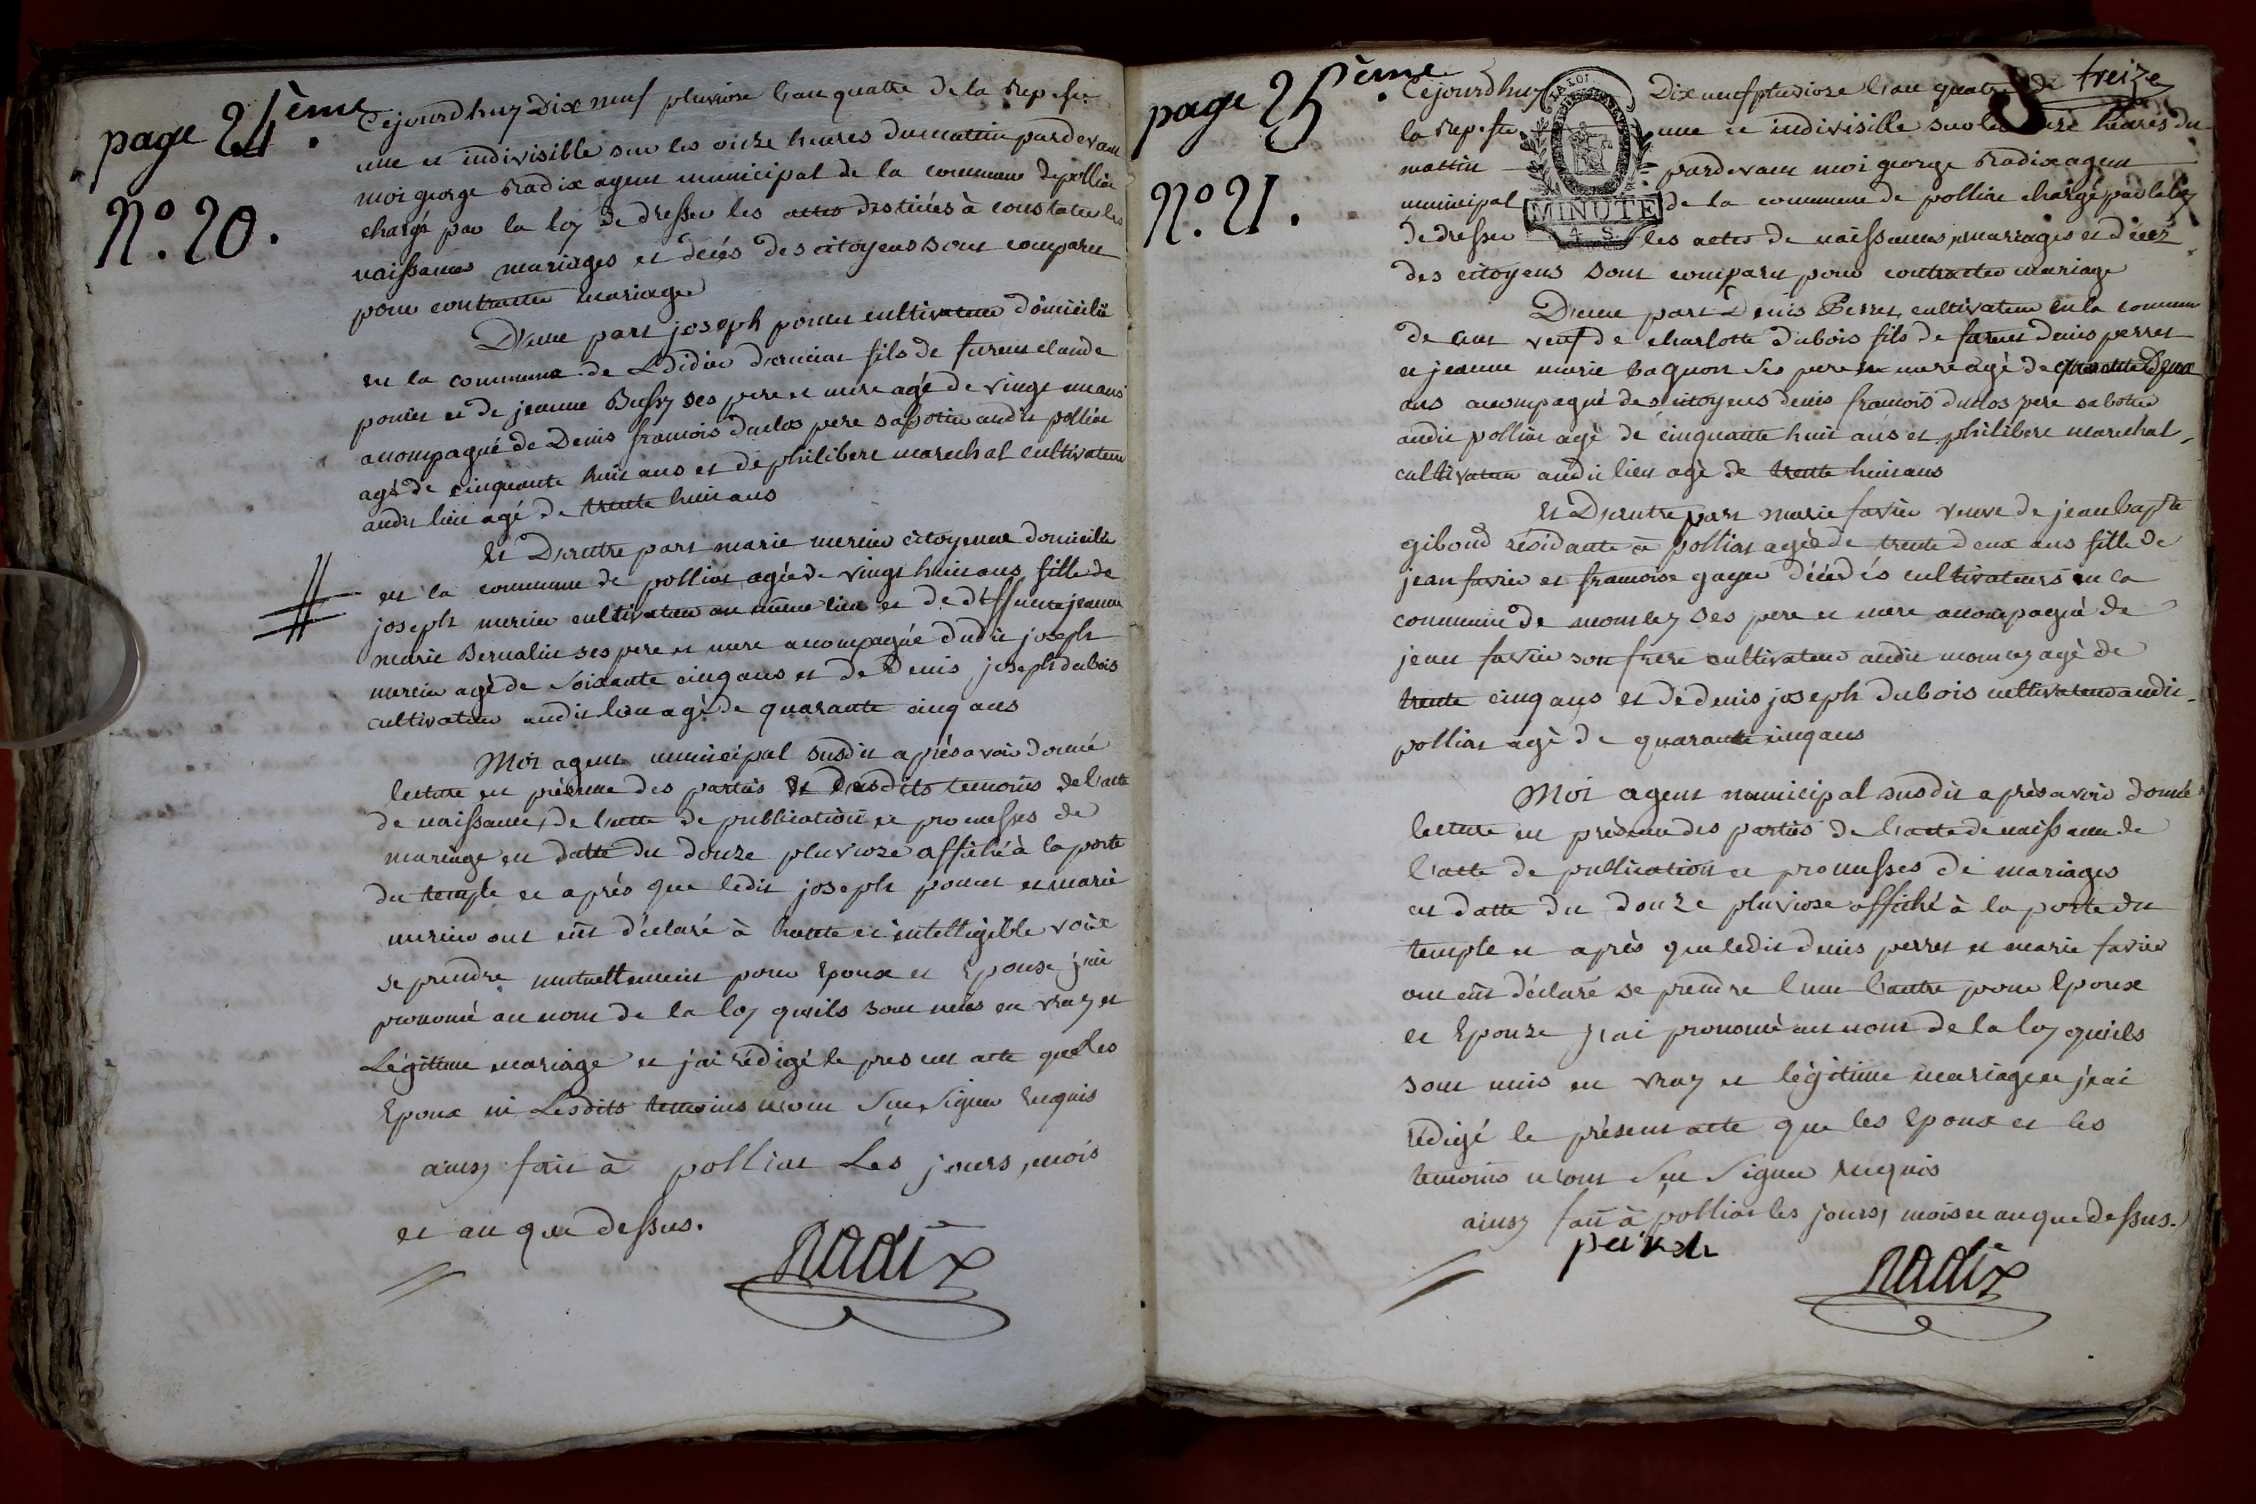 page 24ème.
N.o 20.
Cejourdhuy Dix neuf pluviose l'an quatre de la rep. fse
une et indivisible sur les onze heures du mattin pardevant
moi george Radix agent municipal de la commune de pollia
chargé par la loy de dresser les actes destinés à constater les
naissances mariages et decés des citoyens sont comparu
pour contracter mariage
D'une part joseph poncet cultivateur domicilié
en la commune de L Didier fils de furent claude
poncet et de jeanne Bussy ses pere et mere agé de vingt ans
acompagné de Denis francois duclos pere sabotier audit polliat
agé de cinquante huit ans et de philibert marechal cultivateur
audit lieu agé de trente huit ans
Et Dautre part marie mercier citoyenne domiciliée
en la commune de polliat agée de vingt huit ans fille de
joseph mercier cultivateur au même lieu et de deffuncte jeanne
marie Bernalin ses pere et mere acompagnée dudit joseph
mercier agé de soixante cinq ans et de Denis joseph dubois
cultivateur audit lieu agé de quarante cinq ans
Moi agent municipal susdit après avoir donné
lecture en présence des parties et desdits temoins de l'acte
de naissance, de l'acte de publication et promesses de
mariage en datte du douze pluviose affiché à la porte
du temple et après que ledit joseph poncet et marie
mercier ont eüt déclaré à haute et intelligible voix
se prendre mutuellement pour Epoux et Epouse j'ai
prononcé au nom de la loy quils sont unis en vray et
Légitime mariage et j'ai rédigé le present acte que les
Epoux ni Lesdits temoins n'ont sçu signer Enquis
ainsy fait à polliat Les jours, mois
et an que dessus.
Radix
page 25ème.
N.o 21.
treize
Cejourdhuy Dix neuf pluviose l'an quatre de
la rep. fse une et indivisible sur les heures du
mattin pardevant moi george Radix agent
municipal de la commune de polliat chargé par la loy
de dresser les actes de naissances, mariages et décés
des citoyens sont comparu pour contracter mariage
LA LOI
MINUTE
4 S.
D'une part Denis Perret cultivateur en la commune
de veuf de charlotte Dubois fils de furent denis perret
et jeanne marie Bagnon ses pere et mere agé de quarante Deux
ans acompagné des citoyens denis francois duclos pere sabotier
audit polliat agé de cinquante huit ans et philibert marechal,
cultivateur audit lieu agé de trente huit ans
Et Dautre part marie favier veuve de jean bapte
giboud résidante à polliat agée de trente deux ans fille de
jean favier et francoise goyer décédés cultivateurs en la
commune de moncey ses pere et mere acompagné de
jean favier son frere cultivateur audit moncey agé de
trente cinq ans et de denis joseph dubois cultivateur audit
polliat agé de quarante cinq ans
Moi agent municipal susdit après avoir donné
lecture en présence des parties de l'acte de naissance de
l'acte de publication et promesses de mariages
en datte du douze pluviose affiché à la porte du
temple et après que ledit denis perret et marie favier
ont eüt déclaré se prendre l'une l'autre pour Epoux
et Epouze j'ai prononcé au nom de la loy quils
sont unis en vray et légitime mariage et j'ai
rédigé le présent acte que les Epoux et les
temoins n'ont sçu signer Enquis
ainsy fait à polliat les jours, mois et an que dessus.
Radix